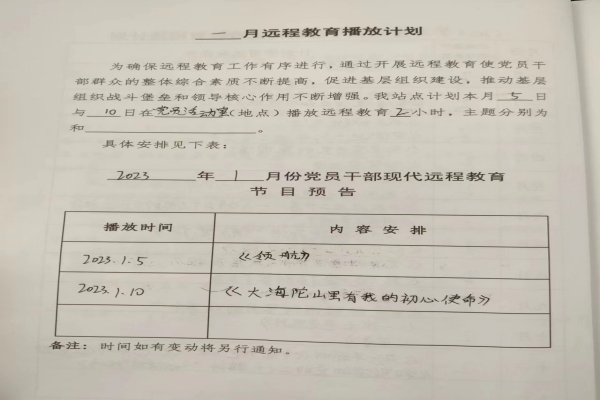 一 月远程教育播放计划
为确保远程教育工作有序进行，通过开展远程教育使党员干
部群众的整体综合素质不断提高，促进基层组织建设，推动基层
组织战斗堡垒和领导核心作用不断增强。我站点计划本月 5 日
与 10 日在党员活动室(地点)播放远程教育 2 小时，主题分别为
和 。
具体安排见下表：
2023 年 1 月份党员干部现代远程教育
节目预告
播放时间 内容安排
2023.1.5 《领航》
2023.1.10 《大海陀山里有我的初心使命》
备注：时间如有变动将另行通知。